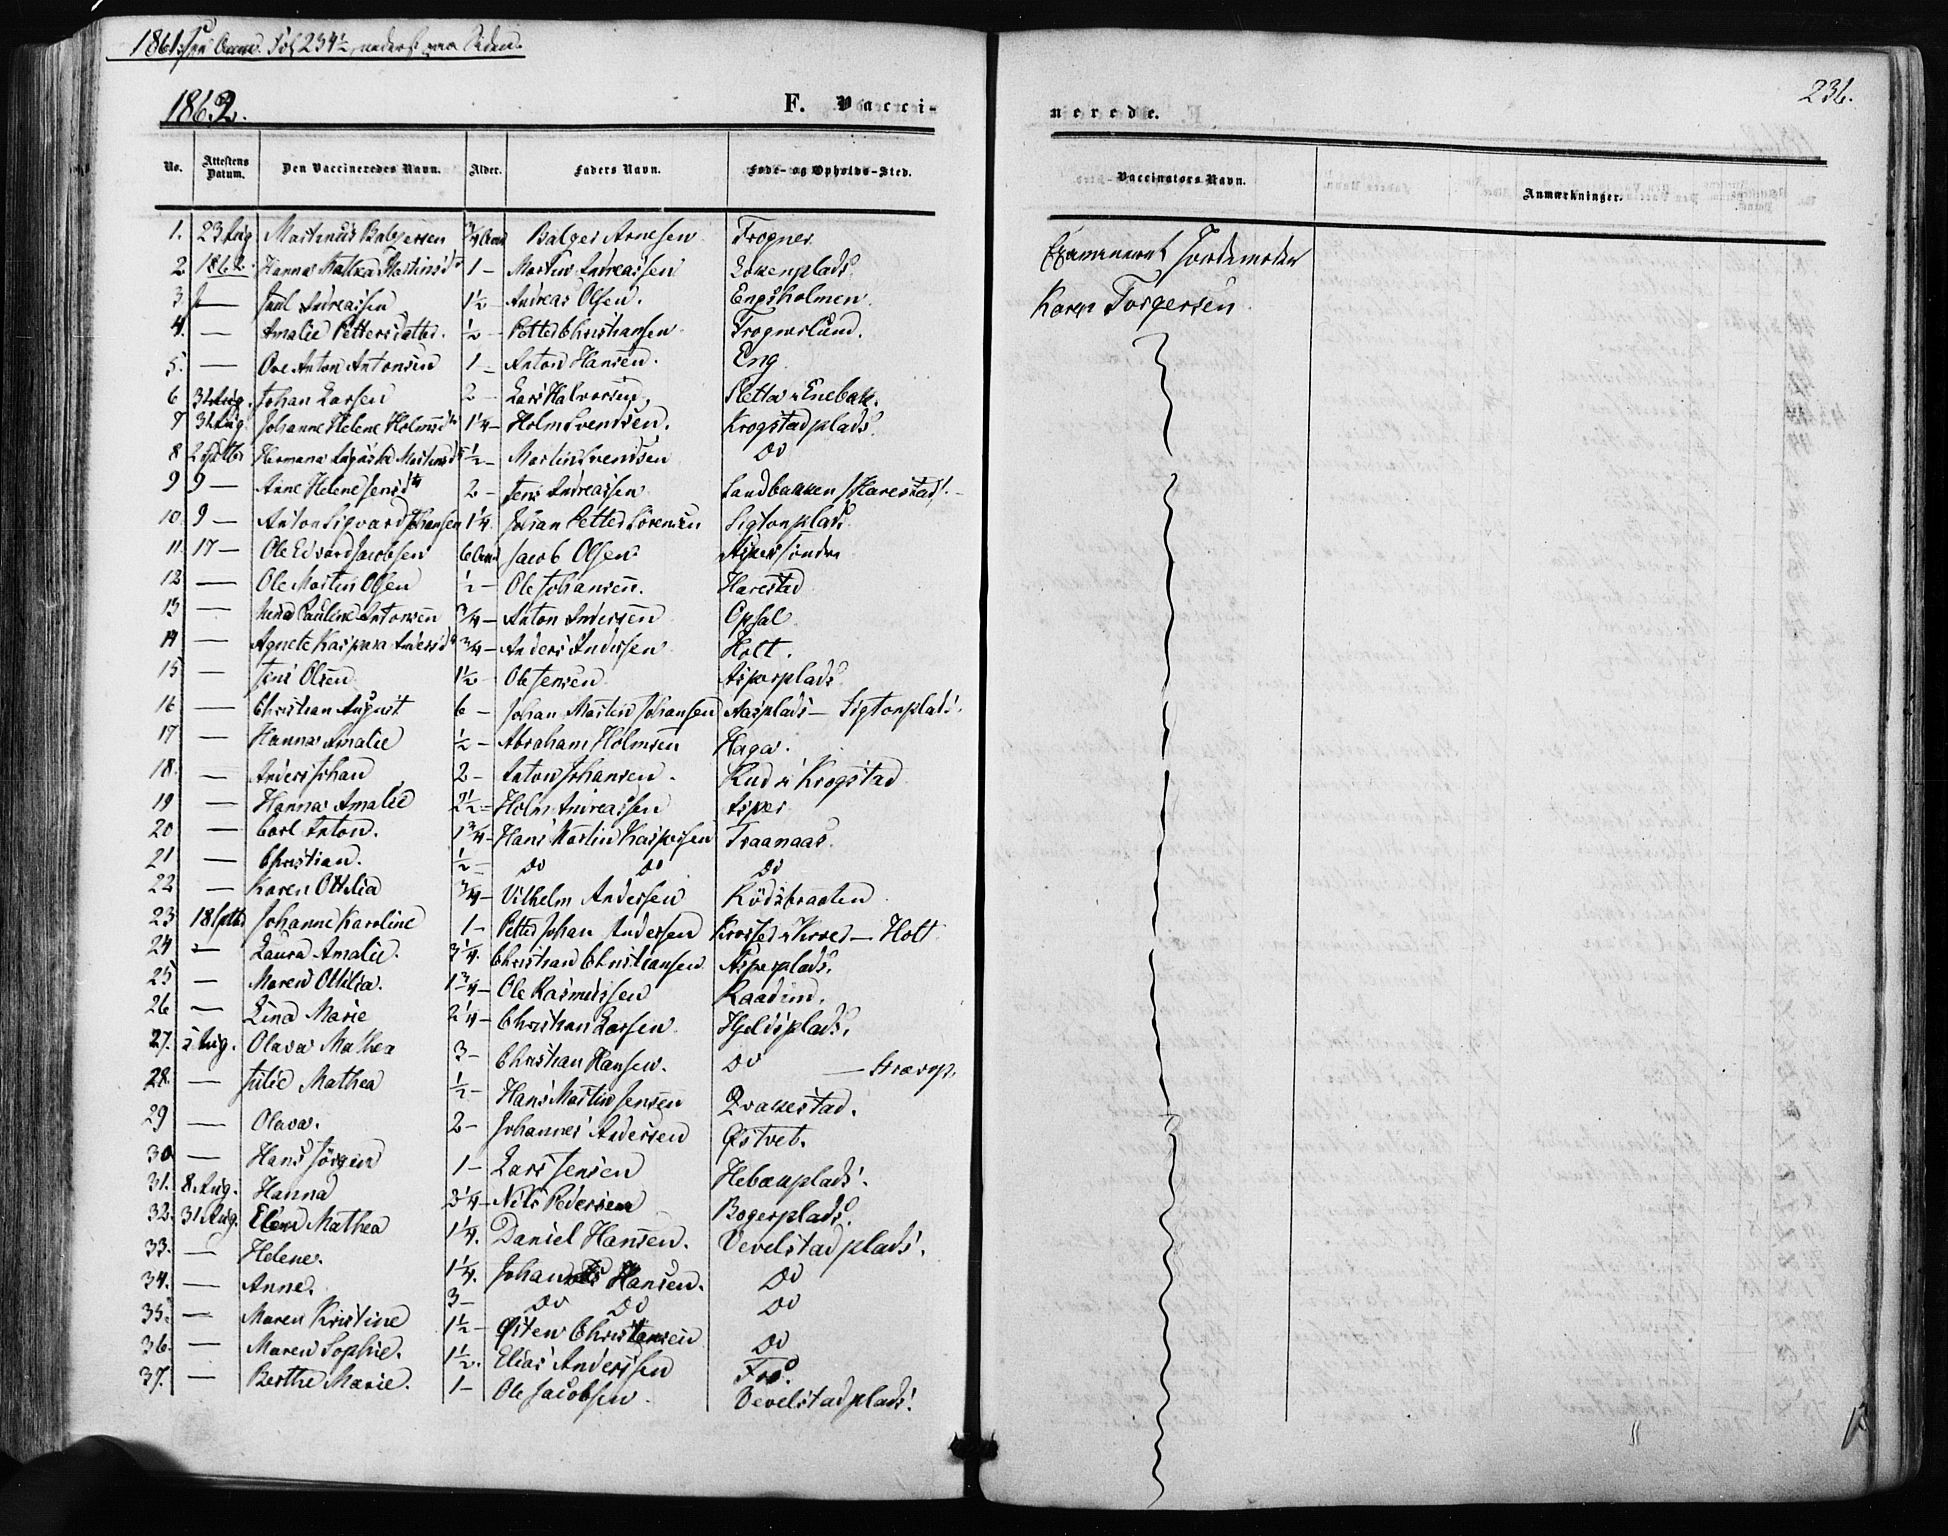 1861, see Anm. Fol 234½, nederst paa Siden.
1862.
F. Vacci-
nerede.
236.
No. Attestens Datum. Den Vaccineredes Navn. Alder. Faders Navn. Føde- og Opholds-Sted. Vaccinators Navn. Anmærkninger.
1. 23 Aug Martinus Balgersen 3/4 Aar Balger Arnesen Frogner Examineret Jordemoder
2 1862. Hanna Martinsd 1 — Martin Andreassen Eekenplads Karen Torgersen
3. — Juul Andreassen 1½ — Andreas Olsen. Engsholmen
4. — Amalie Pettersdatter. ½ — Petter Christiansen Frognerslund.
5. — Ove Anton Antonsen 1 — Anton Hansen. Eng
6 31 Aug. Johan Larsen 2 — Lars Halvorsen, Sletta i Enebak.
7 31 Aug Johanne Helene Holmsd 1¼ — Holm Svendsen. Krogstadplads.
8 2 Septbr Hermana Augusta Martinsd ½ — Martin Svendsen Do
9 9 — Anne Helene Jensdtr 2 — Jens Andreassen Sandbakken / Harestad/. —
10. 9 — Anton Sigvard Johansen 1¼. Johan Petter Sørensen Sigtonplads
11. 17 — Ole Edvard Jacobsen 6 Aar Jacob Olsen Asper søndre
12 — Ole Martin Olsen ½ — Ole Johansen. Harestad
13 — Pauline Antonsen 3/4 — Anton Andersen Opsal
14 — Agnete Kaspara Andersd 3/4 — Anders Andersen Holt.
15 — Jens Olsen 1½ — Ole Jensen Asperplads
16 — Christian August 6 — Johan Martin Johansen Aasplads — Sigtonplads.
17 — Hanna Amalie ½ — Abraham Holmsen Haga.
18. — Anders Johan 2 — Anton Johansen. Rud i Krogstad
19 — Hanna Amalie 2½ — Holm Andreassen Asper
20 — Carl Anton. 1¾ — Hans Martin Kaspersen Traanaas.
21 — Christian. ½ — Do Do Do
22 — Karen Ottilia 3/4 — Vilhelm Andersen Rödsbraaten
23 18 Septbr Johanne Karoline 1 — Petter Johan Andersen Krosser i Kroer — Holt
24 — Laura Amalie. 3¼. Christian Christiansen Asperplads.
25 — Maren Ottilia. 1¾ — Ole Rasmussen Raadim.
26 — Lina Marie 2¼ — Christian Larsen Hjelsplads.
27. 5 Aug. Olava Mathea 3 — Christian Hansen. Do —
28. — Julie Mathea ½ — Hans Martin Jensen Qvakestad.
29 — Olava. 2 — Johannes Andersen Østvet.
30 — Hans Jörgen 1 — Lars Jensen Hebækplads.
31. 8 Aug. Hanna 3¼ — Nils Pedersen Bogerplads.
32. 31 Aug. Elena Mathea 1¼. Daniel Hansen. Vevelstadplads.
33. — Helene. 1¼. Johannes Hansen. Do
34. — Anne. 3 — Do Do Do
35. — Maren Kristine 1½ — Østen Christensen Do
36. — Maren Sophie. 1½. Elias Anderssen Fos.
37. — Berthe Marie. 1 — Ole Jacobsen. Vevelstadplads.